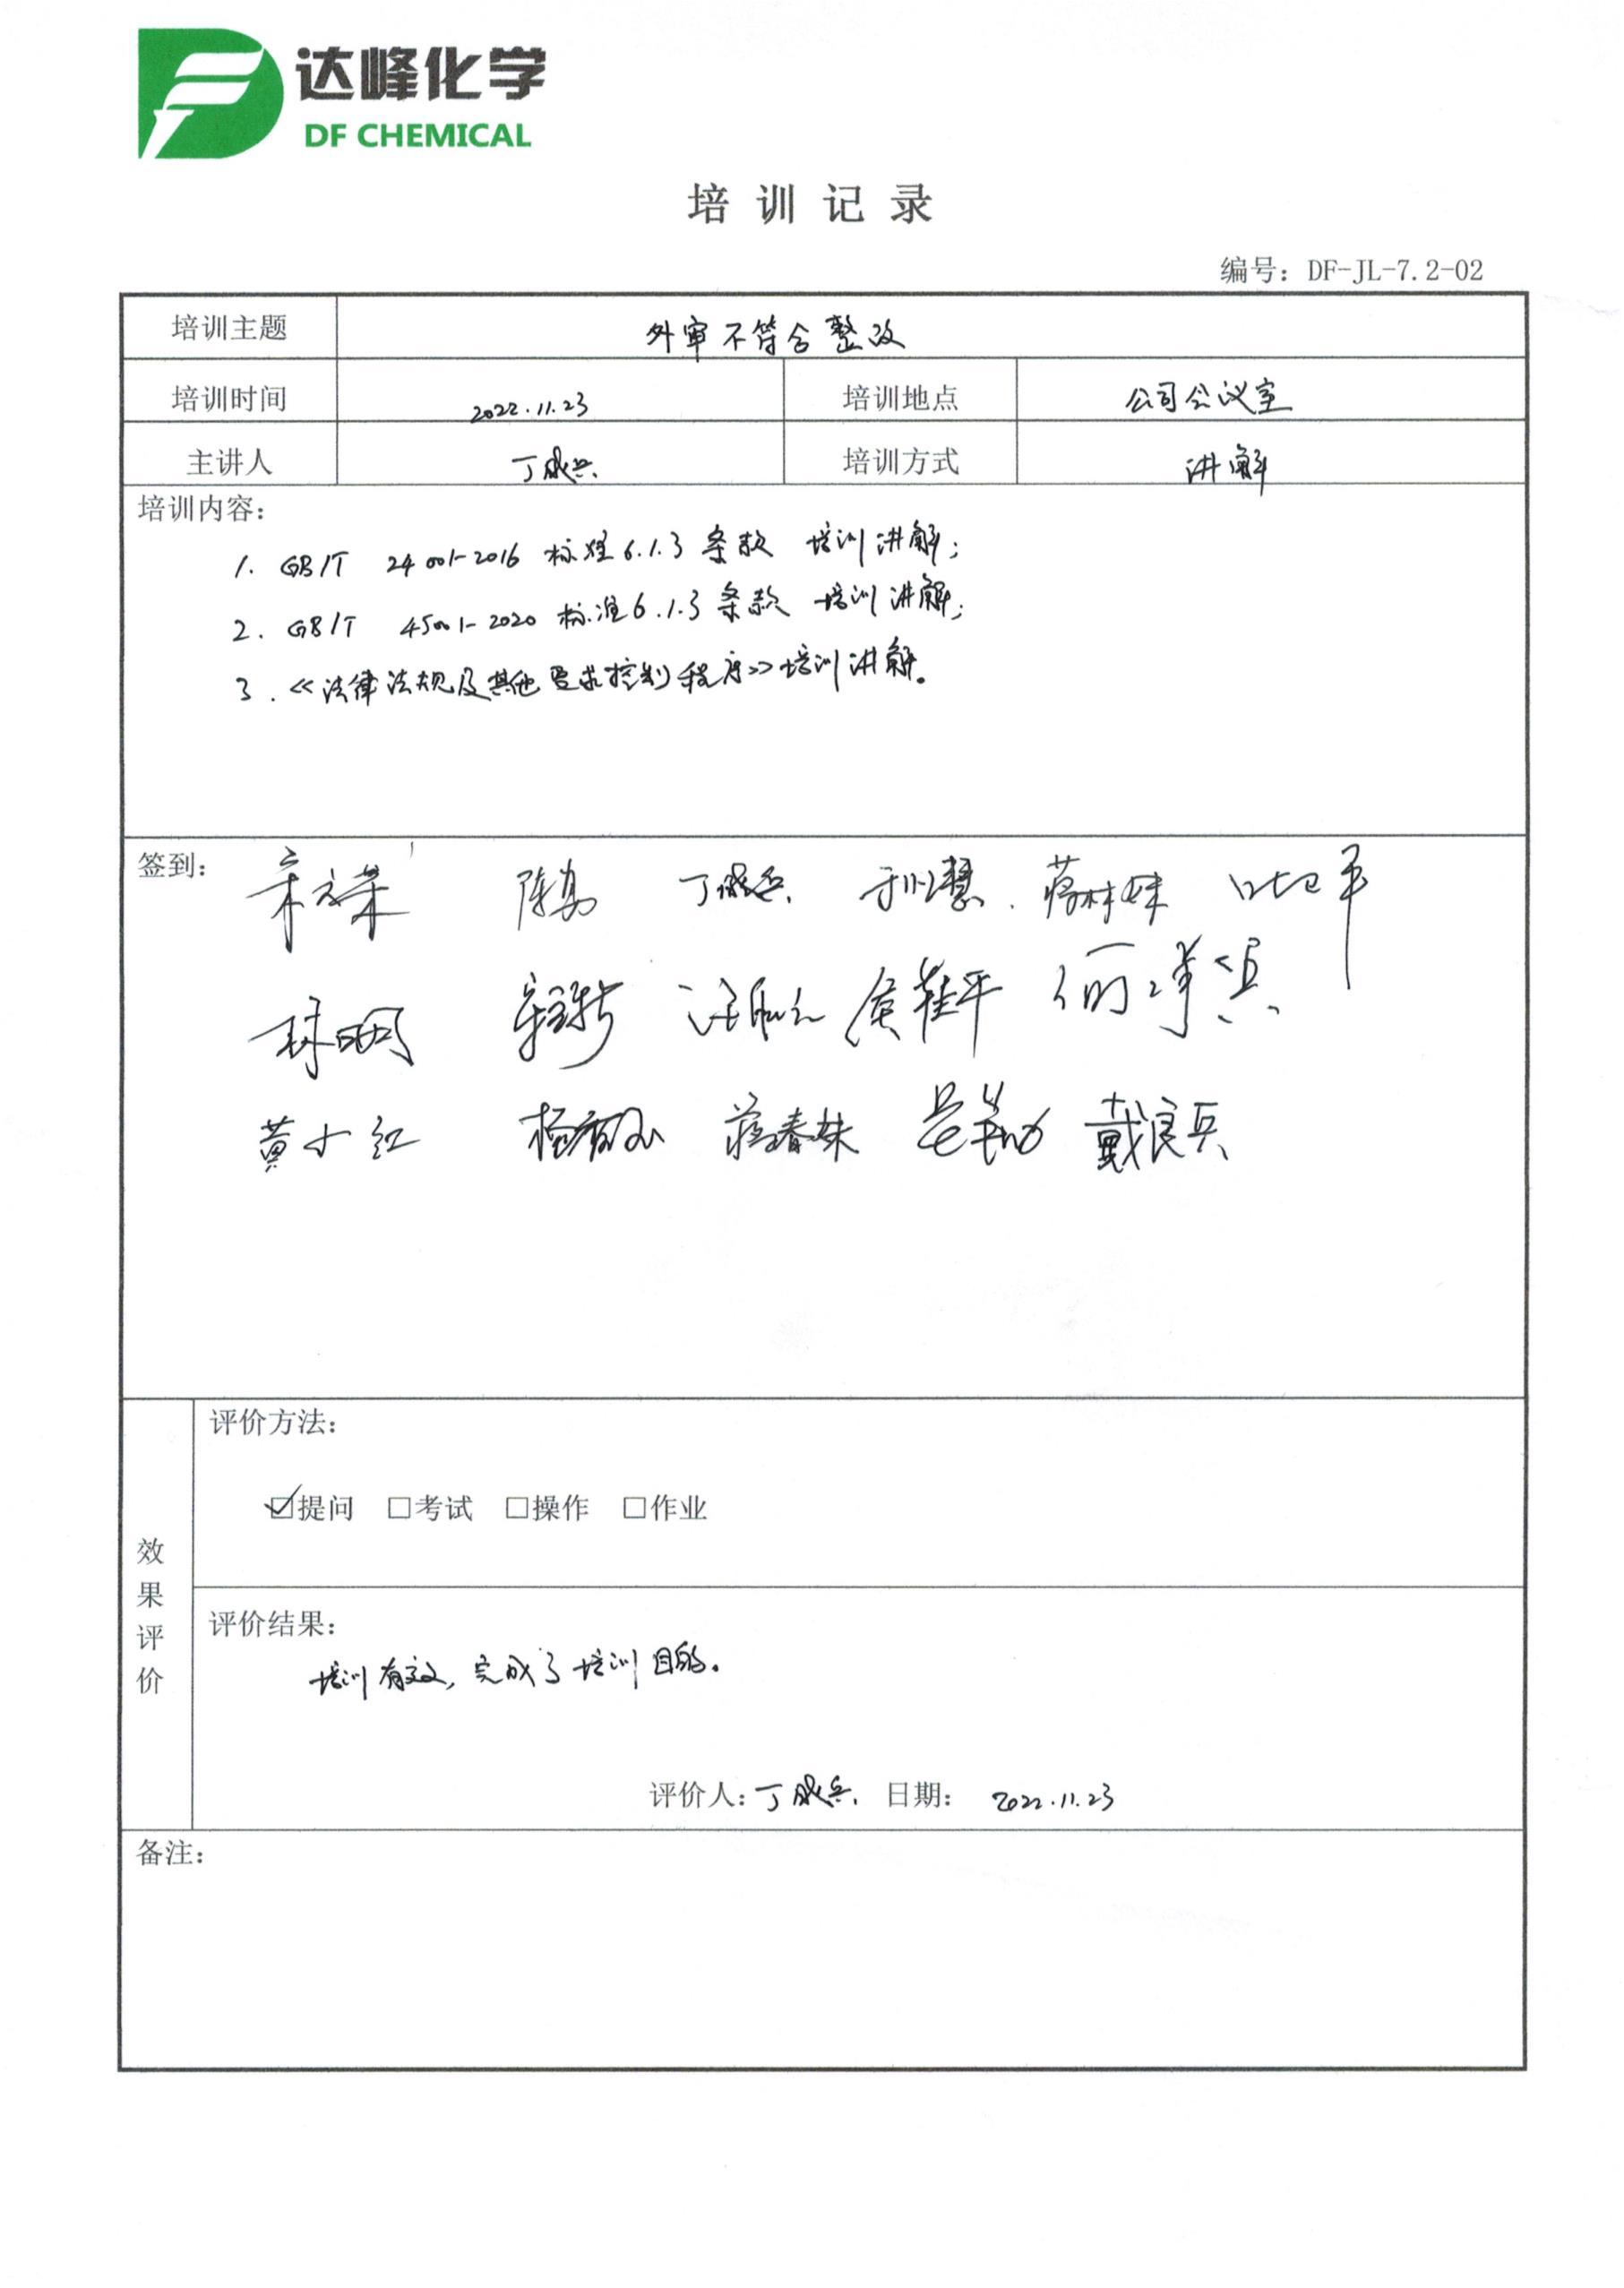 达峰化学
DF CHEMICAL
培训记录
编号：DF-JL-7.2-02
培训主题 外审不符合整改
培训时间 2022.11.23 培训地点 公司会议室
主讲人 丁成兵 培训方式 讲解
培训内容：
1. GB/T 24001-2016 标准6.1.3条款 培训讲解；
2. GB/T 45001-2020 标准6.1.3条款 培训讲解；
3.《法律法规及其他要求控制程序》培训讲解。
签到： 丁成兵 蒋林妹
黄小红 蒋春妹 戴良兵
效果评价
评价方法：
☑提问 □考试 □操作 □作业
评价结果：
培训有效，完成了培训目的。
评价人：丁成兵 日期： 2022.11.23
备注：